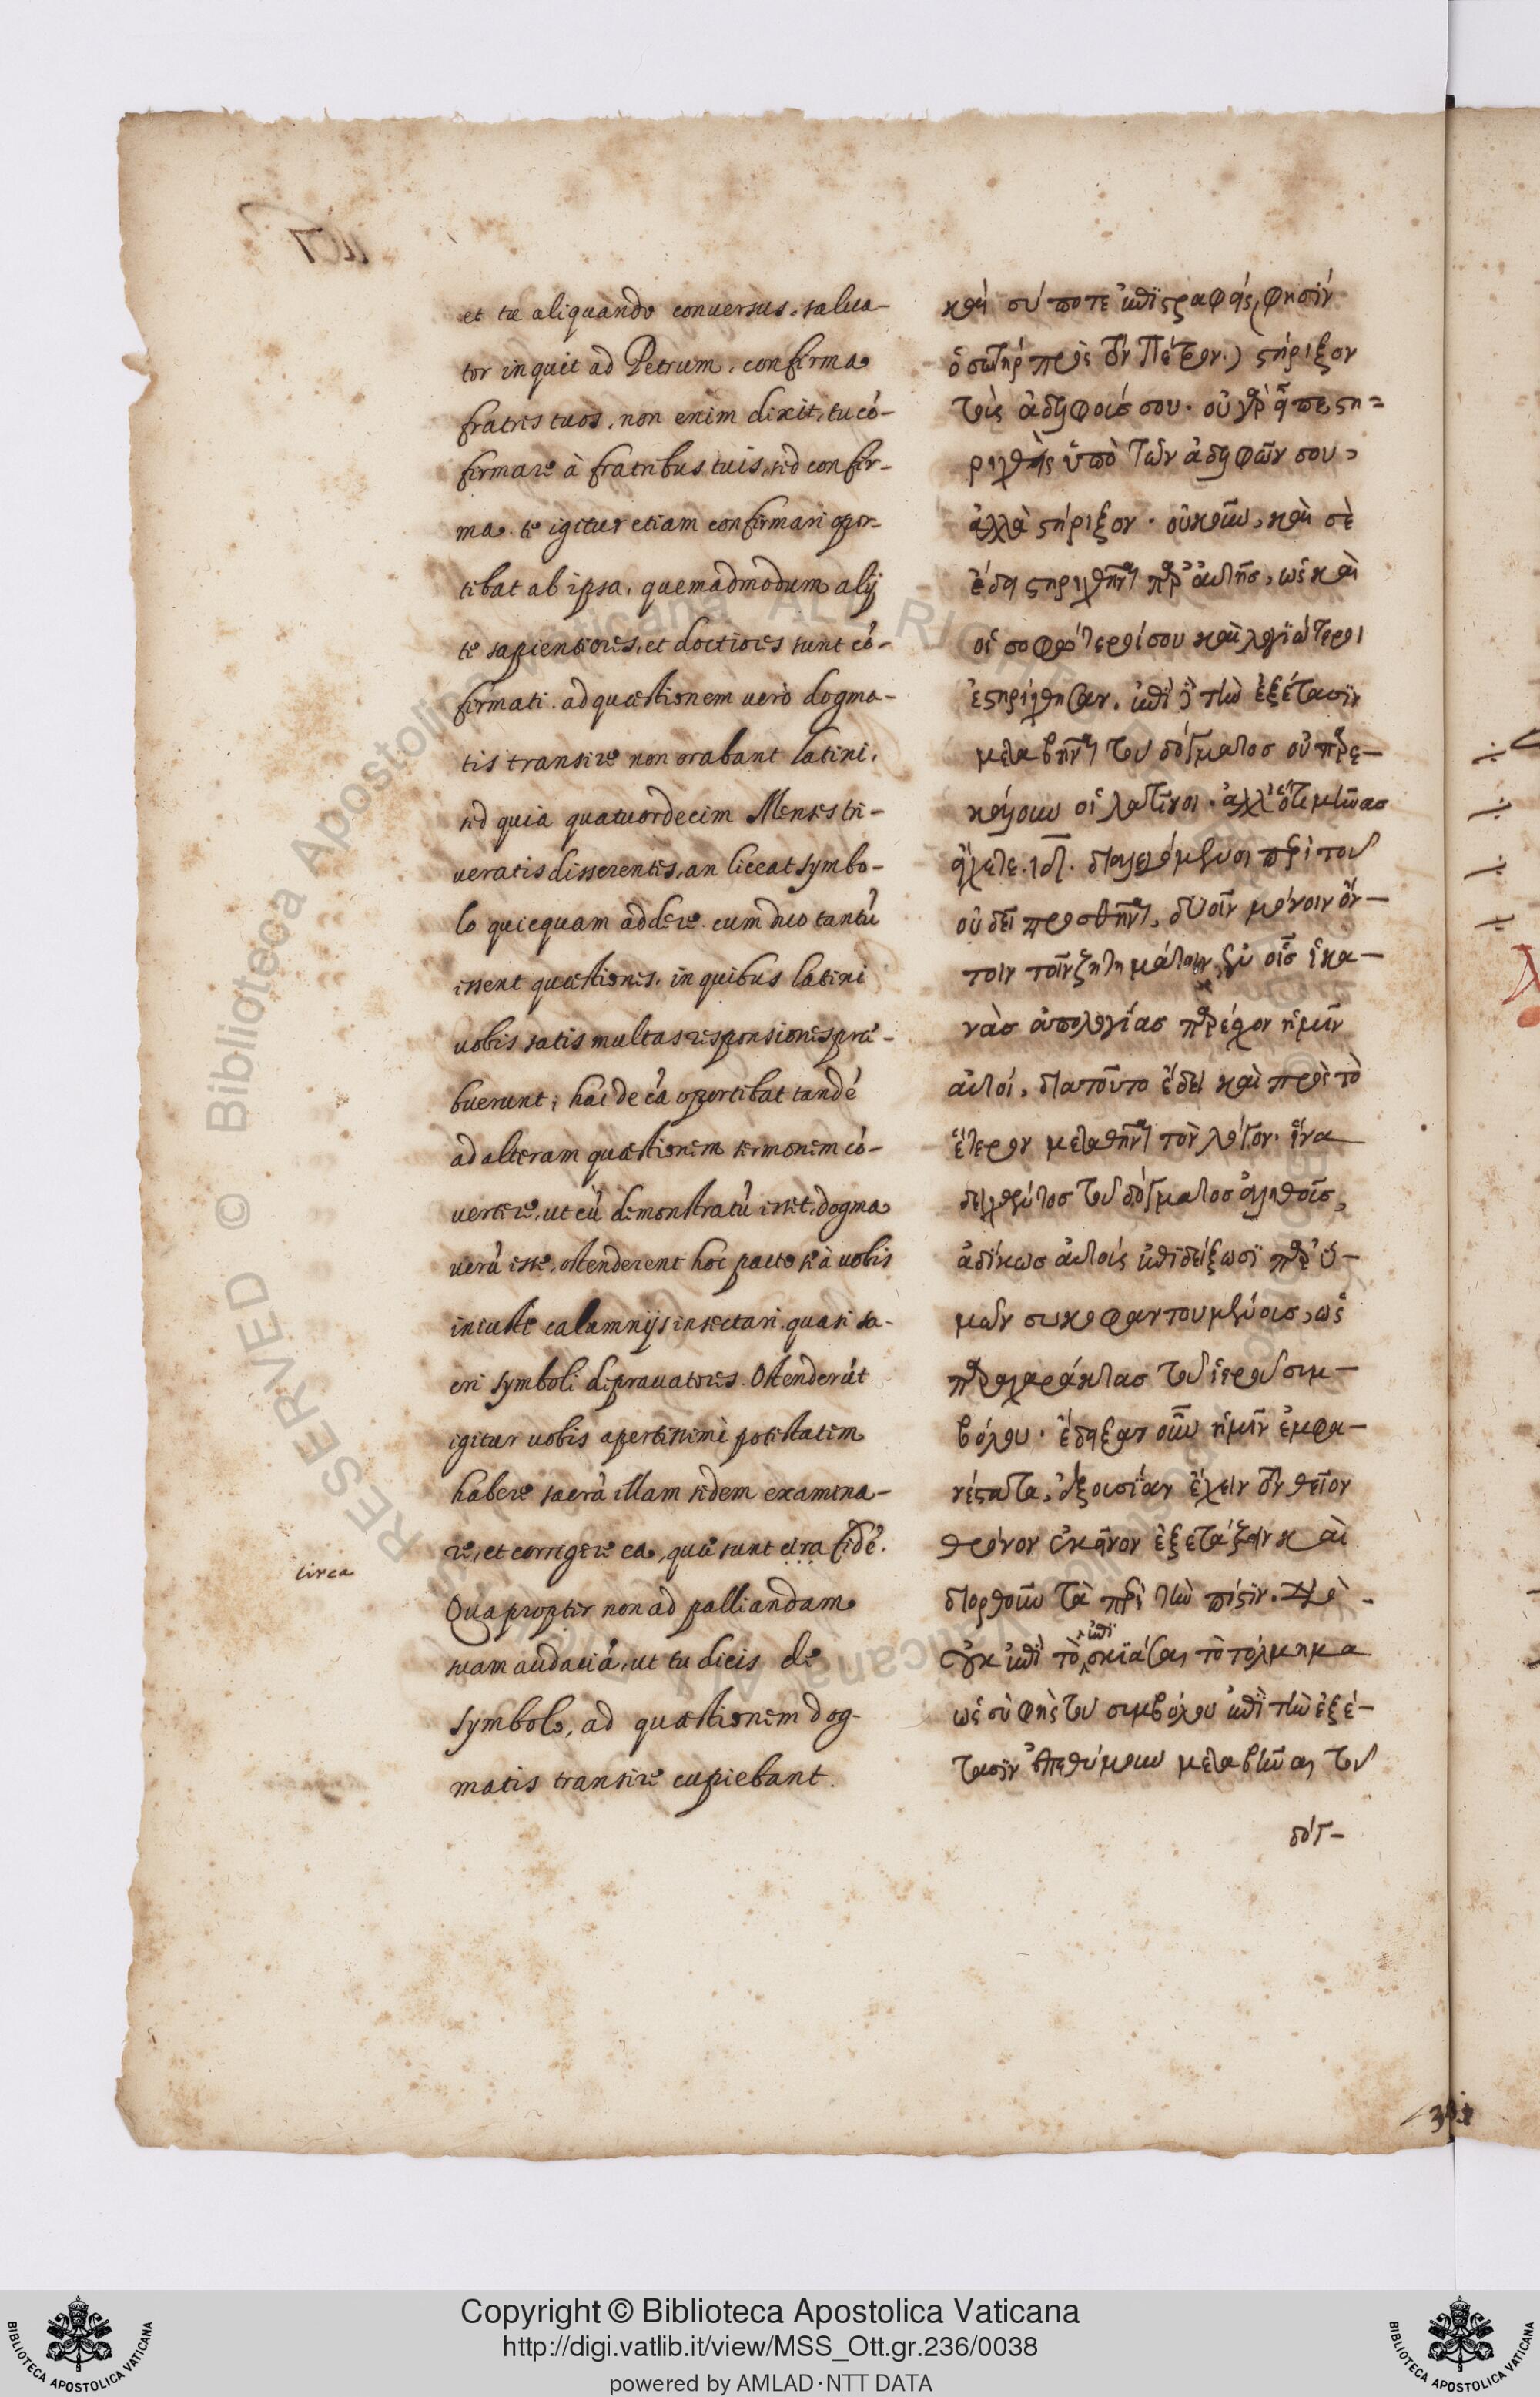 et tu aliquando conuersus, salua-
tor inquit ad Petrum, confirma
fratres tuos, non enim dixit, tu cõ-
firmare à fratribus tuis, sed confir-
ma. te igitur etiam confirmari opor-
tebat ab ipsa, quemadmodum alij
te sapientiores, et doctiores sunt cõ-
firmati. ad quæstionem uerò dogma-
tis transire non orabant latini,
sed quia quatuordecim Menses tri-
ueratis disserentes, an liceat symbo-
lo quicquam addere. cum duo tantũ
essent quæstiones, in quibus latini
uobis satis multas responsiones præ-
buerunt; hac de cã oportebat tandẽ
ad alteram quæstionem sermonem cõ-
uertere, ut cũ demonstratũ esset, dogma
uerũ esse, ostenderent hoc pacto se à uobis
iniuste calumnijs insectari, quasi sa-
cri symboli deprauatores. Ostenderũt
igitur uobis apertissimè potestatem
habere sacrã illam sedem examina-
re, et corrigere ea, quæ sunt cira fidẽ.
circa
Quapropter non ad palliandam
suam audaciã, ut tu dicis de
symbolo, ad quæstionem dog-
matis transire cupiebant.
καὶ σύ ποτε ἐπϊστραφεὶς, φησὶν
ὁ σωτὴρ πρὸς τὸν Πέτρον·) στήριξον
τοὺς ἀδελφούς σου· οὐ γὰρ εἶπε, στη=
ριχθεὶς ὑπὸ τῶν ἀδελφῶν σου,
ἀλλὰ στήριξον· οὐκοῦν, καὶ σὲ
ἔδει στηριχθῆναι παρ' αὐτῆς, ὡς καὶ
οἱ σοφώτεροί σου καὶ λογϊώτεροι
ἐστηρίχθησαν. ἐπὶ δὲ τὴν ἐξέτασϊν
μεταβῆναι τοῦ δόγματος οὐ παρε-
κάλουν οἱ λατῖνοι· ἀλλ' ὅτε μῆνας
εἴχετε ιδ. διαλεγόμενοι περὶ τοῦ
οὐ δεῖ προσθῆναι, δυοῖν μόνοιν ὄν-
τοιν τοῖν ζητημάτοιν, ἐν οἷς ἱκα-
νὰς ἀπολογίας παρέσχον ἡμῖν
αὐτοί, διατοῦτο ἔδει καὶ πρὸς τὸ
ἕτερον μεταθῆναι τὸν λόγον· ἵνα
δειχθέντος τοῦ δόγματος ἀληθοῦς,
ἀδίκως αὐτοὺς ἐπϊδείξωσϊ παρ' ὑ-
μῶν συκοφαντουμένους, ὡς
παραχαράκτας τοῦ ἱεροῦ συμ-
βόλου· ἔδειξαν οὖν ἡμῖν ἐμφα-
νέστατα, ἐξουσίαν ἔχειν τὸν θεῖον
θρόνον ἐκεῖνον ἐξετάζειν καὶ
διορθοῦν τὰ περὶ τὴν πίστιν.
οὐκ ἐπὶ τὸ ἐπϊσκϊάσαι τὸ τόλμημα
ὡς σὺ φῂς τοῦ συμβόλου ἐπὶ τὴν ἐξέ-
τασϊν ἐπεθύμουν μεταβῆναι τοῦ
δόγ-
Copyright © Biblioteca Apostolica Vaticana
http://digi.vatlib.it/view/MSS_Ott.gr.236/0038
powered by AMLAD·NTT DATA
BIBLIOTECA APOSTOLICA VATICANA
BIBLIOTECA APOSTOLICA VATICANA